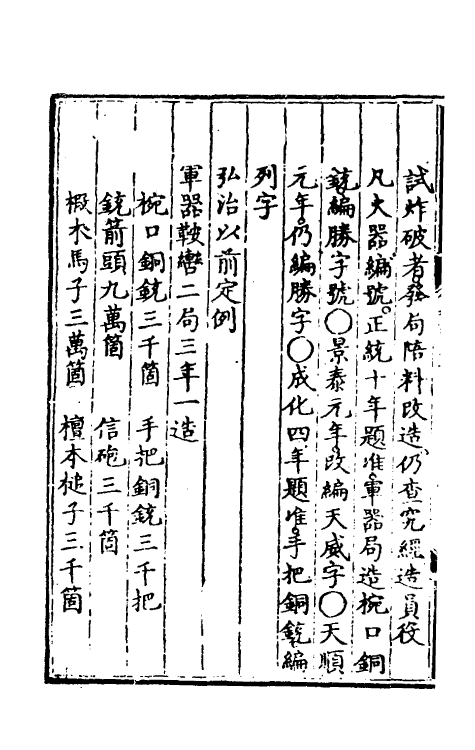 試炸破者發局陪料改造仍查究經造員役
凡火器編號正統十年題准軍器局造椀口銅
銃編勝字號〇景泰元年改編天威字〇天順
元年仍編勝字〇成化四年題准手把銅銃編
列字
弘治以前定例
軍器鞍轡二局三年一造
椀口銅銃三千箇 手把銅銃三千把
銃箭頭九萬箇 信砲三千箇
椴木馬子三萬箇 檀木槌子三千箇